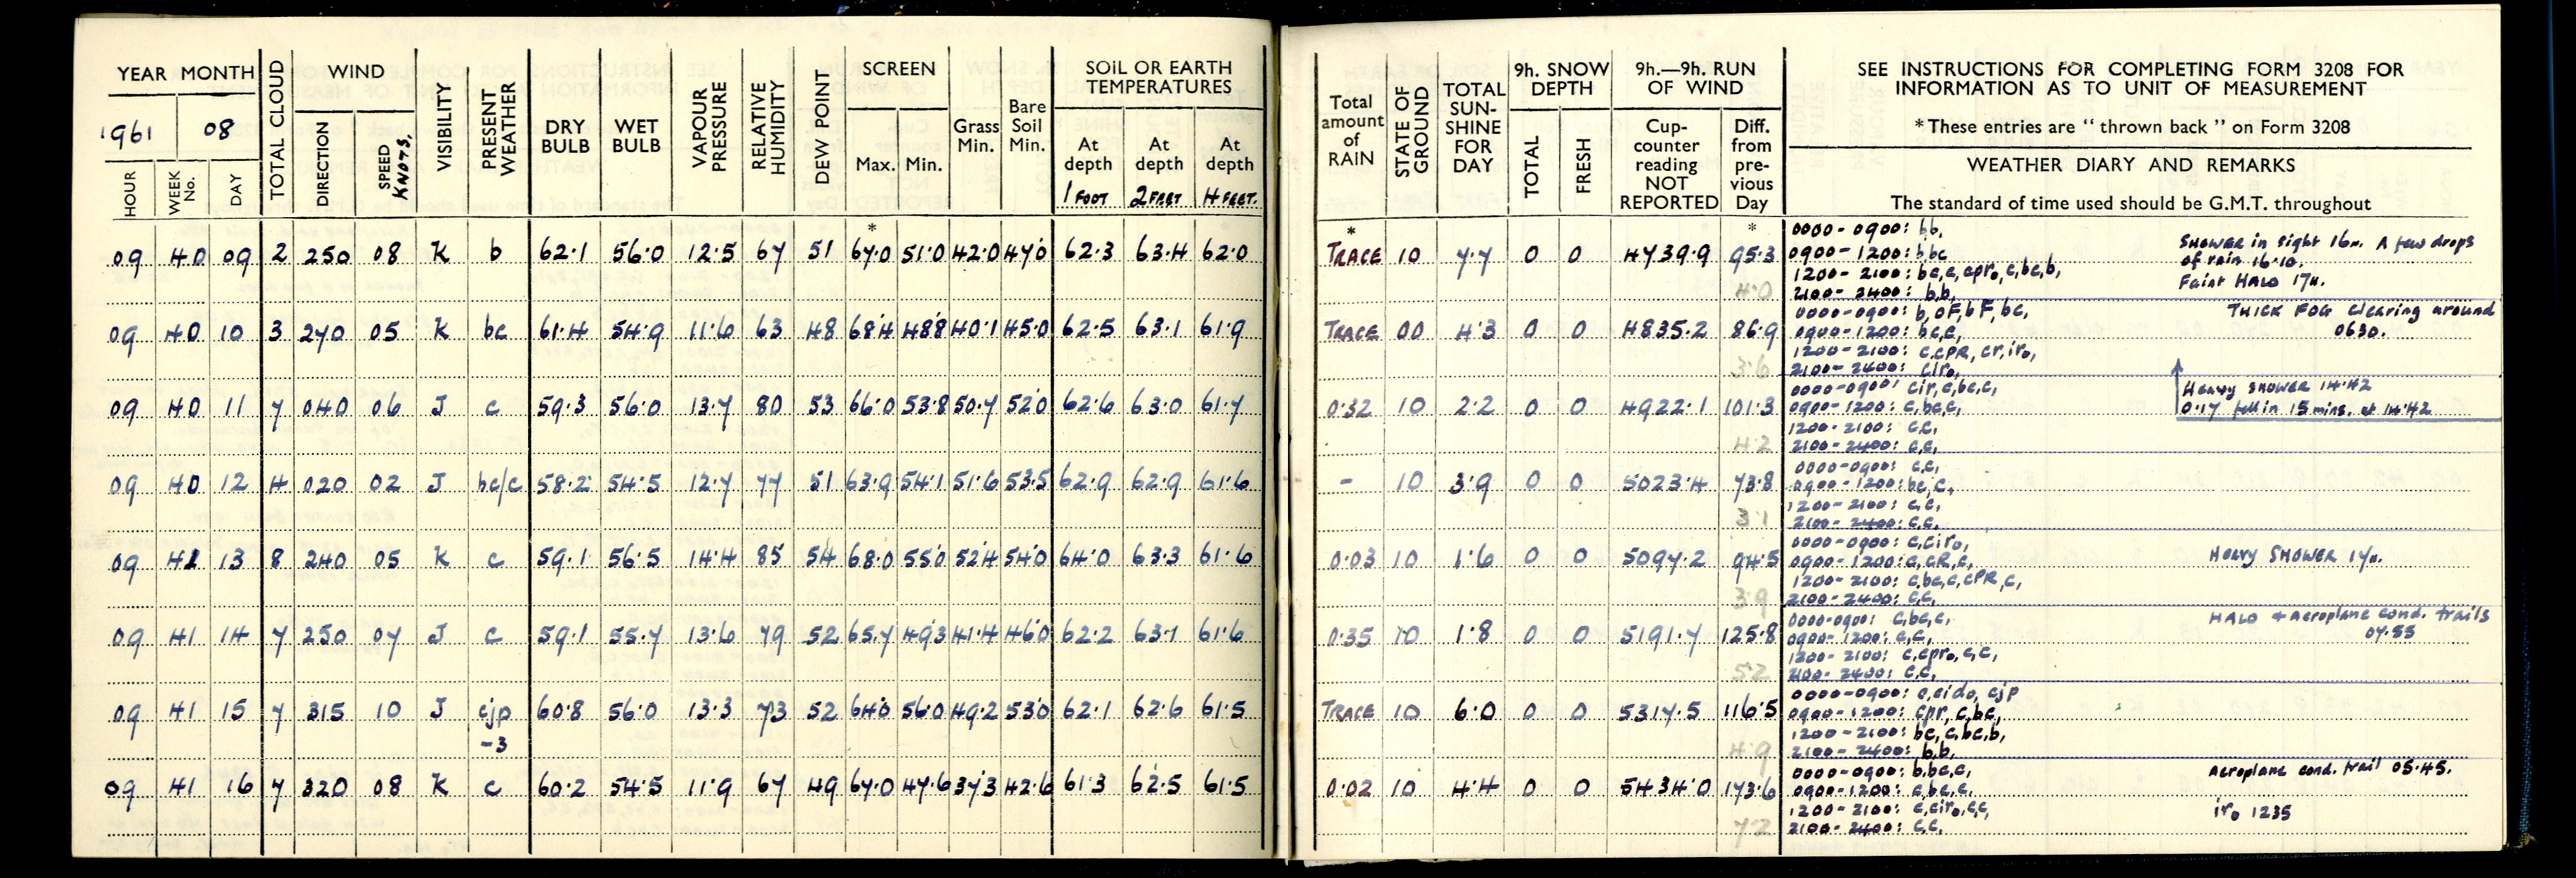 YEAR MONTH
1961 08
HOUR WEEK No. DAY
TOTAL CLOUD
WIND
DIRECTION SPEED KNOTS.
VISIBILITY
PRESENT WEATHER
DRY BULB
WET BULB
VAPOUR PRESSURE
RELATIVE HUMIDITY
DEW POINT
SCREEN
Max. Min.
Grass Min.
Bare Soil Min.
SOIL OR EARTH TEMPERATURES
At depth 1 FOOT
At depth 2 FEET
At depth 4 FEET.
*
09 40 09 2 250 08 K b 62.1 56.0 12.5 67 51 67.0 51.0 42.0 47.0 62.3 63.4 62.0
09 40 10 3 270 05 K bc 61.4 54.9 11.6 63 48 68.4 48.8 40.1 45.0 62.5 63.1 61.9
09 40 11 7 040 06 J c 59.3 56.0 13.7 80 53 66.0 53.8 50.7 52.0 62.6 63.0 61.7
09 40 12 4 020 02 J bc/c 58.2 54.5 12.7 77 51 63.9 54.1 51.6 53.5 62.9 62.9 61.6
09 41 13 8 240 05 K c 59.1 56.5 14.4 85 54 68.0 55.0 52.4 54.0 64.0 63.3 61.6
09 41 14 7 250 07 J c 59.1 55.7 13.6 79 52 65.7 49.3 41.4 46.0 62.2 63.1 61.6
09 41 15 7 315 10 J cjp 60.8 56.0 13.3 73 52 64.0 56.0 49.2 53.0 62.1 62.6 61.5
-3
09 41 16 7 320 08 K c 60.2 54.5 11.9 67 49 67.0 47.6 37.3 42.6 61.3 62.5 61.5
Total amount of RAIN
STATE OF GROUND
TOTAL SUN-SHINE FOR DAY
9h. SNOW DEPTH
TOTAL FRESH
9h.—9h. RUN OF WIND
Cup-counter reading NOT REPORTED
Diff. from pre-vious Day
SEE INSTRUCTIONS FOR COMPLETING FORM 3208 FOR
INFORMATION AS TO UNIT OF MEASUREMENT
* These entries are "thrown back" on Form 3208
WEATHER DIARY AND REMARKS
The standard of time used should be G.M.T. throughout
* *
TRACE 10 7.7 0 0 4739.9 95.3
4.0
0000-0900: bb,
0900-1200: bbc
1200-2100: bc,c,cpr₀,c,bc,b,
2100-2400: b,b,
Shower in sight 16h. A few drops
of rain 16.10.
Faint HALO 17h.
TRACE 00 4.3 0 0 4835.2 86.9
3.6
0000-0900: b,oF,bF,bc,
0900-1200: bc,c,
1200-2100: c,cPR,cr,ir₀,
2100-2400: cir₀,
THICK FOG clearing around
0630.
0.32 10 2.2 0 0 4922.1 101.3
4.2
0000-0900: cir,c,bc,c,
0900-1200: c,bc,c,
1200-2100: c,c,
2100-2400: c,c,
Heavy shower 14.42
0.17 fell in 15 mins. at 14.42
- 10 3.9 0 0 5023.4 73.8
3.1
0000-0900: c,c,
0900-1200: bc,c,
1200-2100: c,c,
2100-2400: c,c,
0.03 10 1.6 0 0 5097.2 94.5
3.9
0000-0900: c,cir₀,
0900-1200: c,cR,c,
1200-2100: c,bc,c,cPR,c,
2100-2400: c,c,
Heavy SHOWER 17h.
0.35 10 1.8 0 0 5191.7 125.8
5.2
0000-0900: c,bc,c,
0900-1200: c,c,
1200-2100: c,cpr₀,c,c,
2100-2400: c,c,
HALO + Aeroplane cond. trails
07.55
TRACE 10 6.0 0 0 5317.5 116.5
4.9
0000-0900: c,cid₀,cjp
0900-1200: cpr,c,bc,
1200-2100: bc,c,bc,b,
2100-2400: b,b,
0.02 10 4.4 0 0 5434.0 173.6
7.2
0000-0900: b,bc,c,
0900-1200: c,bc,c,
1200-2100: c,cir₀,c,c,
2100-2400: c,c,
Aeroplane cond. trail 05.45.
ir₀ 1235